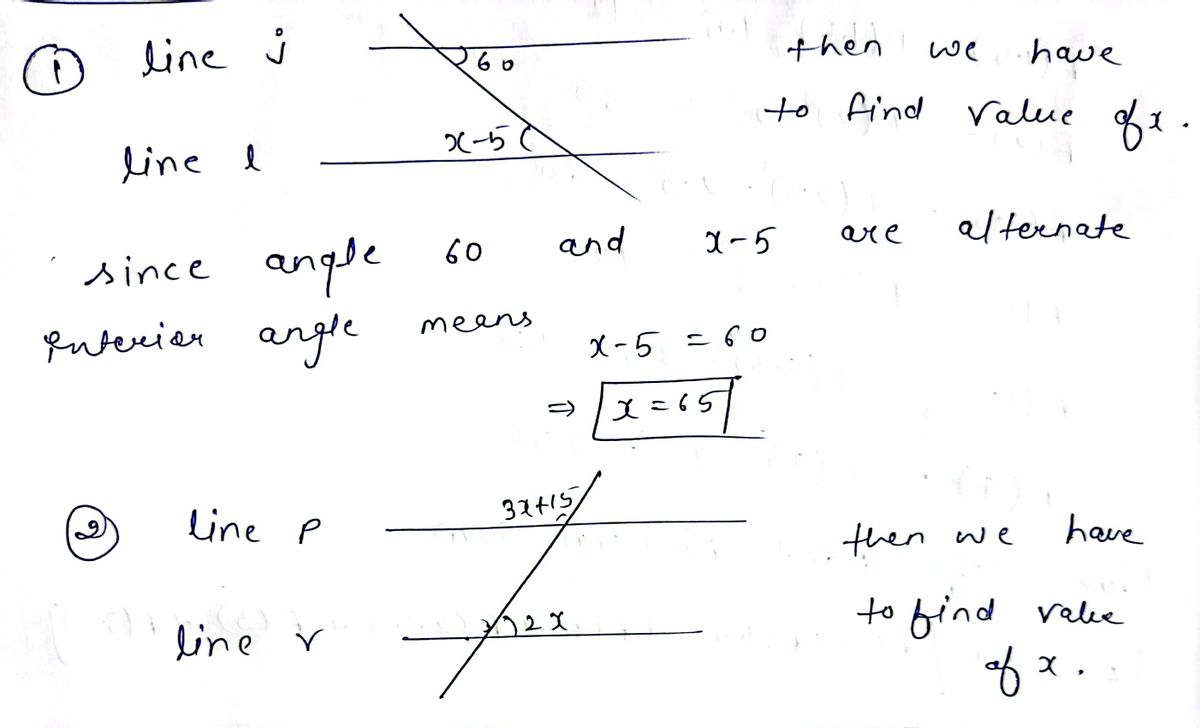 ① line j 60 then we have
to find value of x.
line l x-5
since angle 60 and x-5 are alternate
interior angle means
x-5 = 60
⇒ x = 65
② line p 3x+15 then we have
to find value
line r 2x of x.